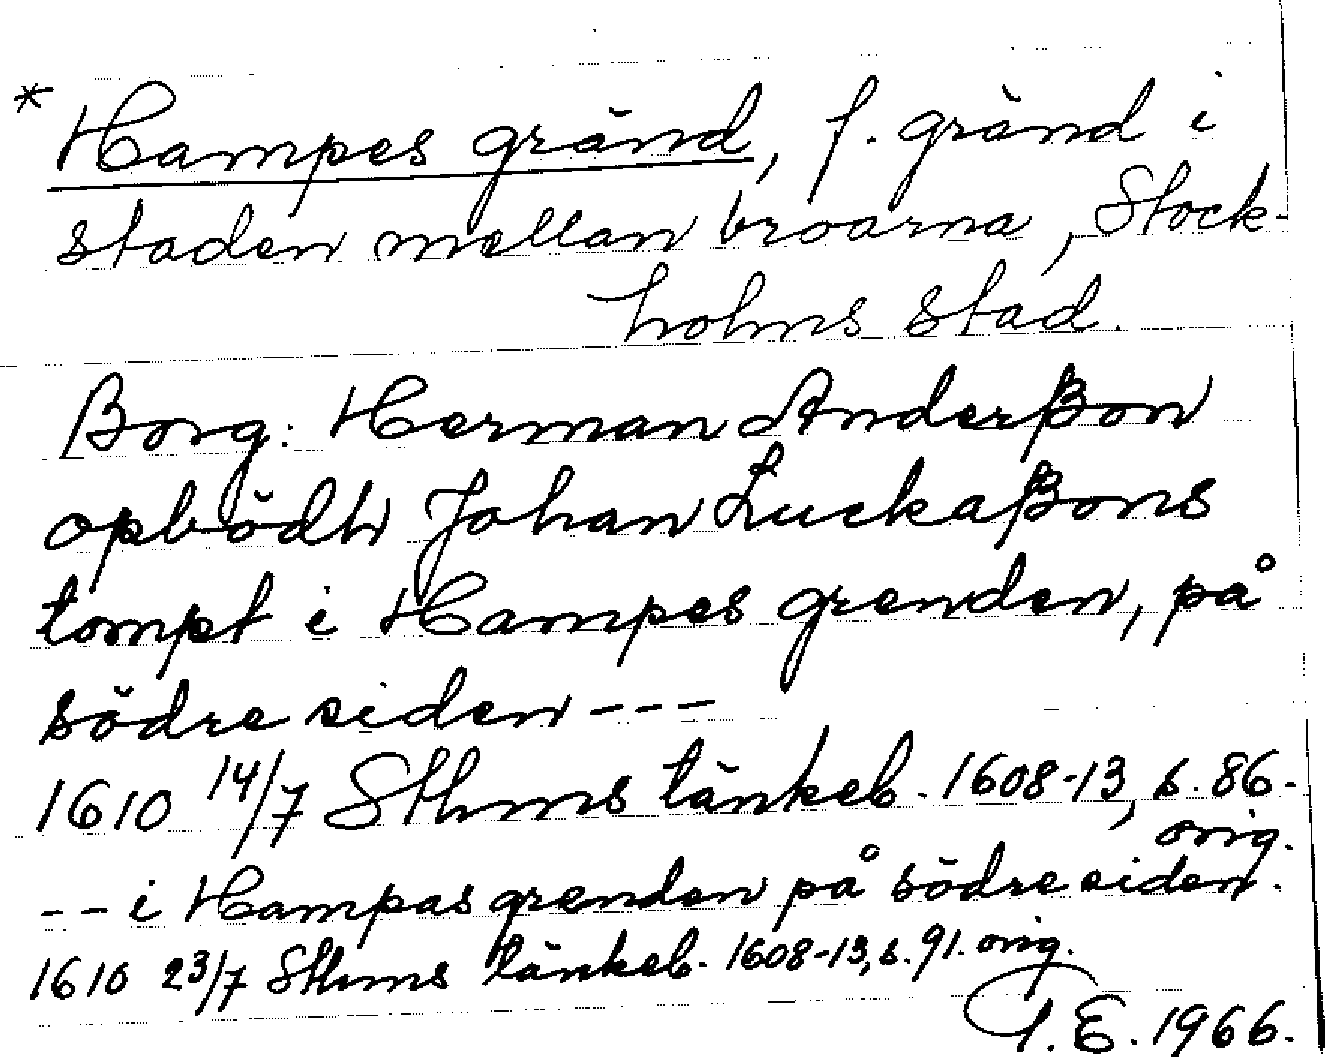 * Hampes gränd, f. gränd i
staden mellan broarna, Stock-
holms stad.
Borg: Herman Anderßon
opbödh Johan Luckaßons
tompt i Hampes grenden, på
södre siden ---
1610 14/7 Sthms tänkeb. 1608-13, s. 86.
orig.
-- i Hampas grenden på södre siden.
1610 23/7 Sthms tänkeb. 1608-13, s. 91. orig.
P.E. 1966.